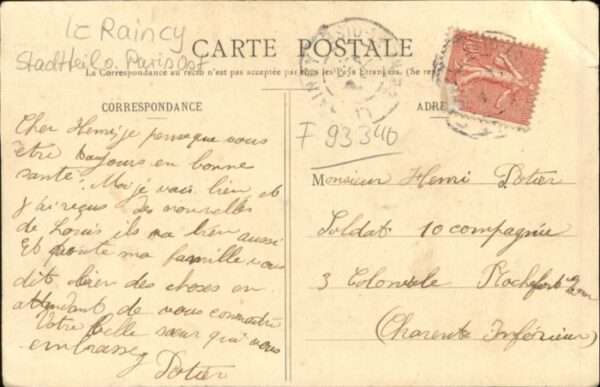 Le Raincy
Stadtteil o. Paris Ost
CARTE POSTALE
La Correspondance au recto n'est pas acceptée par tous les Pays Etrangers. (Se ren
CORRESPONDANCE
ADRE
F 93340
Cher Henri je pense que vous
être toujours en bonne
santé. Moi je vais bien et
j'ai reçus des nouvelles
de Louis ils va bien aussi
Et toute ma famille vous
dit bien des choses en
attendant de vous connaitre
Votre belle sœur qui vous
embrasse
Potier
Monsieur Henri Potier
Soldat 10 compagnie
3 Coloniale Rochefort s/mer
(Charente Inférieure)